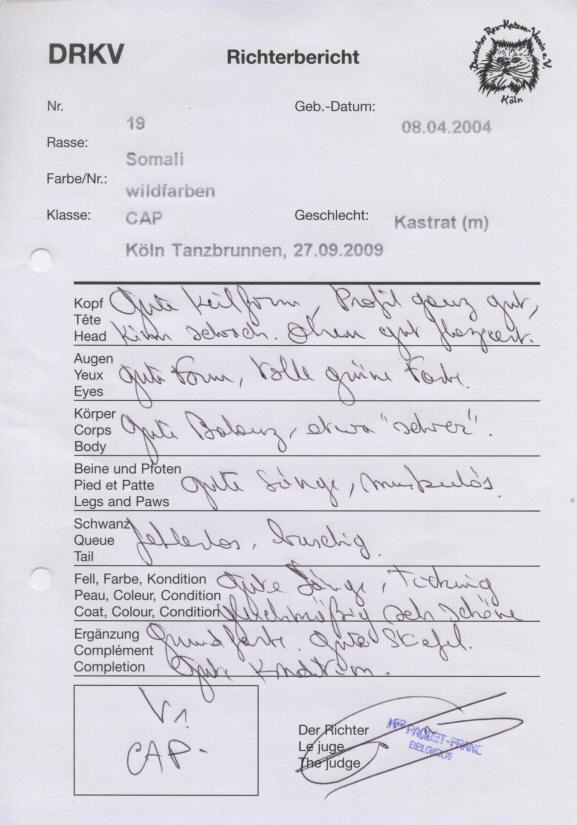 DRKV
Richterbericht
Deutscher Rex-Katzen-Verein e.V.
Köln
Nr.
19
Geb.-Datum:
08.04.2004
Rasse:
Somali
Farbe/Nr.:
wildfarben
Klasse:
CAP
Geschlecht:
Kastrat (m)
Köln Tanzbrunnen, 27.09.2009
Kopf
Tête
Head
Gute Keilform, Profil ganz gut,
Kinn schwach. Ohren gut plazziert.
Augen
Yeux
Eyes
Gute Form, volle grüne Farbe.
Körper
Corps
Body
Gute Balanz, etwa "schwer".
Beine und Pfoten
Pied et Patte
Legs and Paws
Gute Länge, muskulös.
Schwanz
Queue
Tail
fehlerlos, buschig.
Fell, Farbe, Kondition
Peau, Coleur, Condition
Coat, Colour, Condition
Gute Länge, Ticking
gleichmäßig sehr schöne
Ergänzung
Complément
Completion
Grundfarbe. Gute Stiefel.
Gute Kondition.
V1
CAP-
Der Richter
Le juge
The judge
PAQUET-FRANC
BELGIQUE